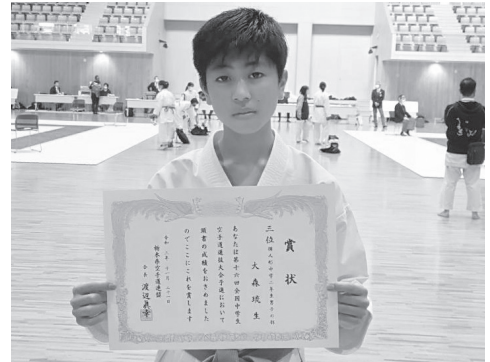 賞状
三位
大森琉生
あなたは第十六回全国中学生
空手道選抜大会予選において
頭書の成績をおさめました
のでここにこれを賞します
栃木県空手道連盟
会長 渡辺